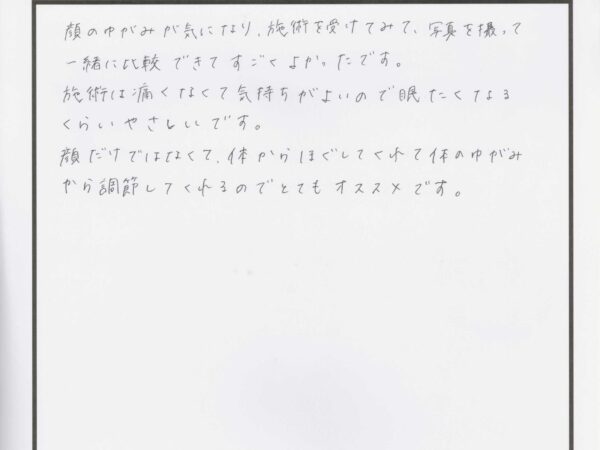 顔のゆがみが気になり、施術を受けてみて、写真を撮って
一緒に比較できてすごくよかったです。
施術は痛くなくて気持ちがよいので眠たくなる
くらいやさしいです。
顔だけではなくて、体からほぐしてくれて体のゆがみ
から調節してくれるのでとてもオススメです。